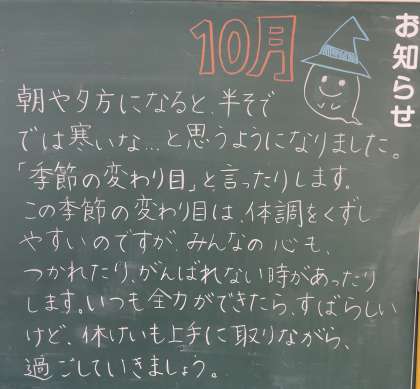 お知らせ
10月
朝や夕方になると、半そで
では寒いな…と思うようになりました。
「季節の変わり目」と言ったりします。
この季節の変わり目は、体調をくずし
やすいのですが、みんなの心も、
つかれたり、がんばれない時があったり
します。いつも全力ができたら、すばらしい
けど、休けいも上手に取りながら、
過ごしていきましょう。